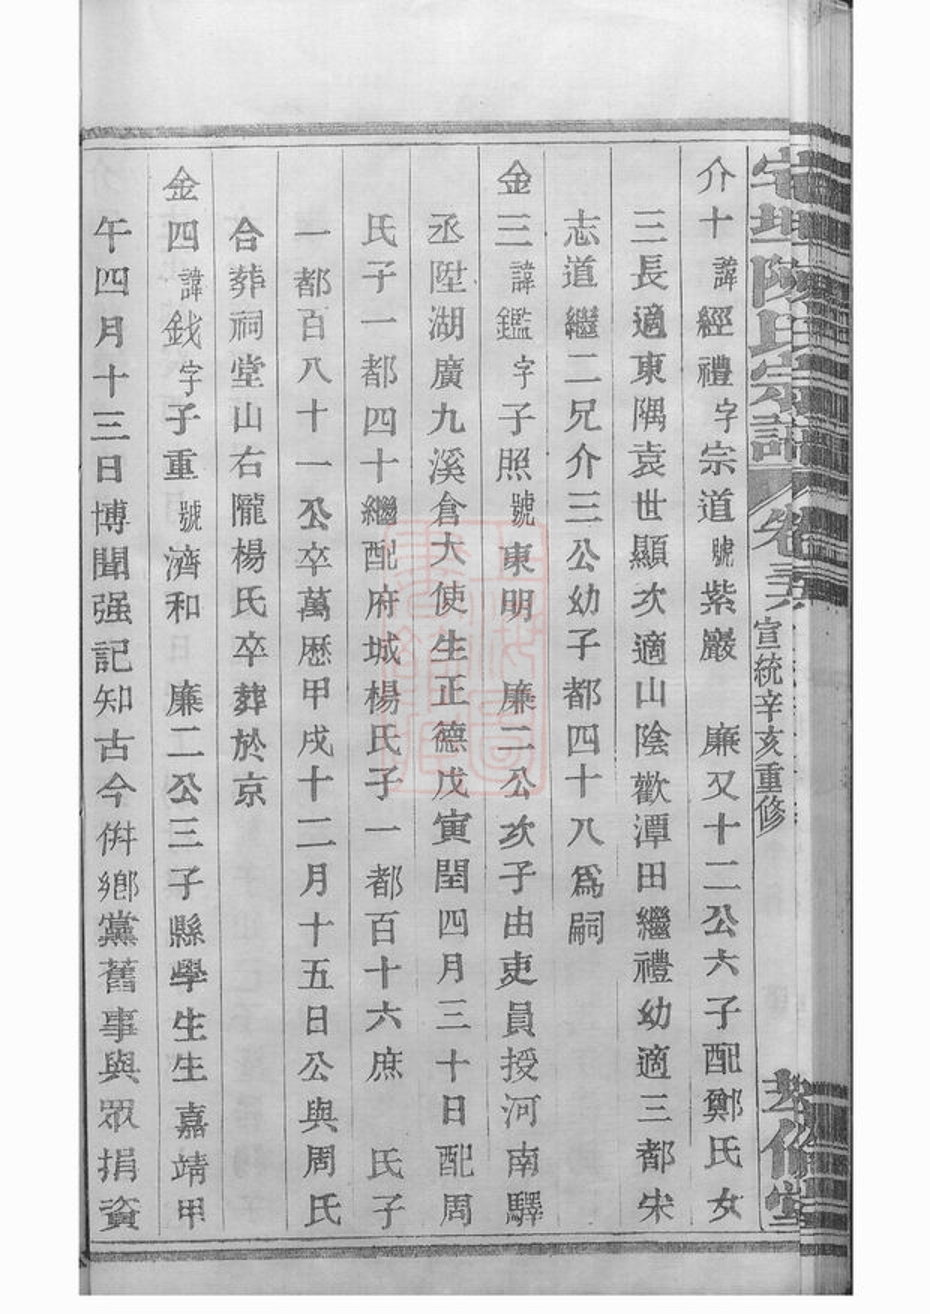 宅埠陳氏宗譜 卷 宣統辛亥重修 堂
介十諱經禮字宗道號紫巖 廉又十二公六子配鄭氏女
三長適東隅袁世顯次適山陰歡潭田繼禮幼適三都宋
志道繼二兄介三公幼子都四十八爲嗣
金三諱鑑字子照號東明 廉二公次子由吏員授河南驛
丞陞湖廣九溪倉大使生正德戊寅閏四月三十日配周
氏子一都四十繼配府城楊氏子一都百十六庶 氏子
一都百八十一公卒萬歷甲戌十二月十五日公與周氏
合葬祠堂山右隴楊氏卒葬於京
金四諱鉞字子重號濟和 廉二公三子縣學生生嘉靖甲
午四月十三日博聞强記知古今併鄉黨舊事與眾捐資